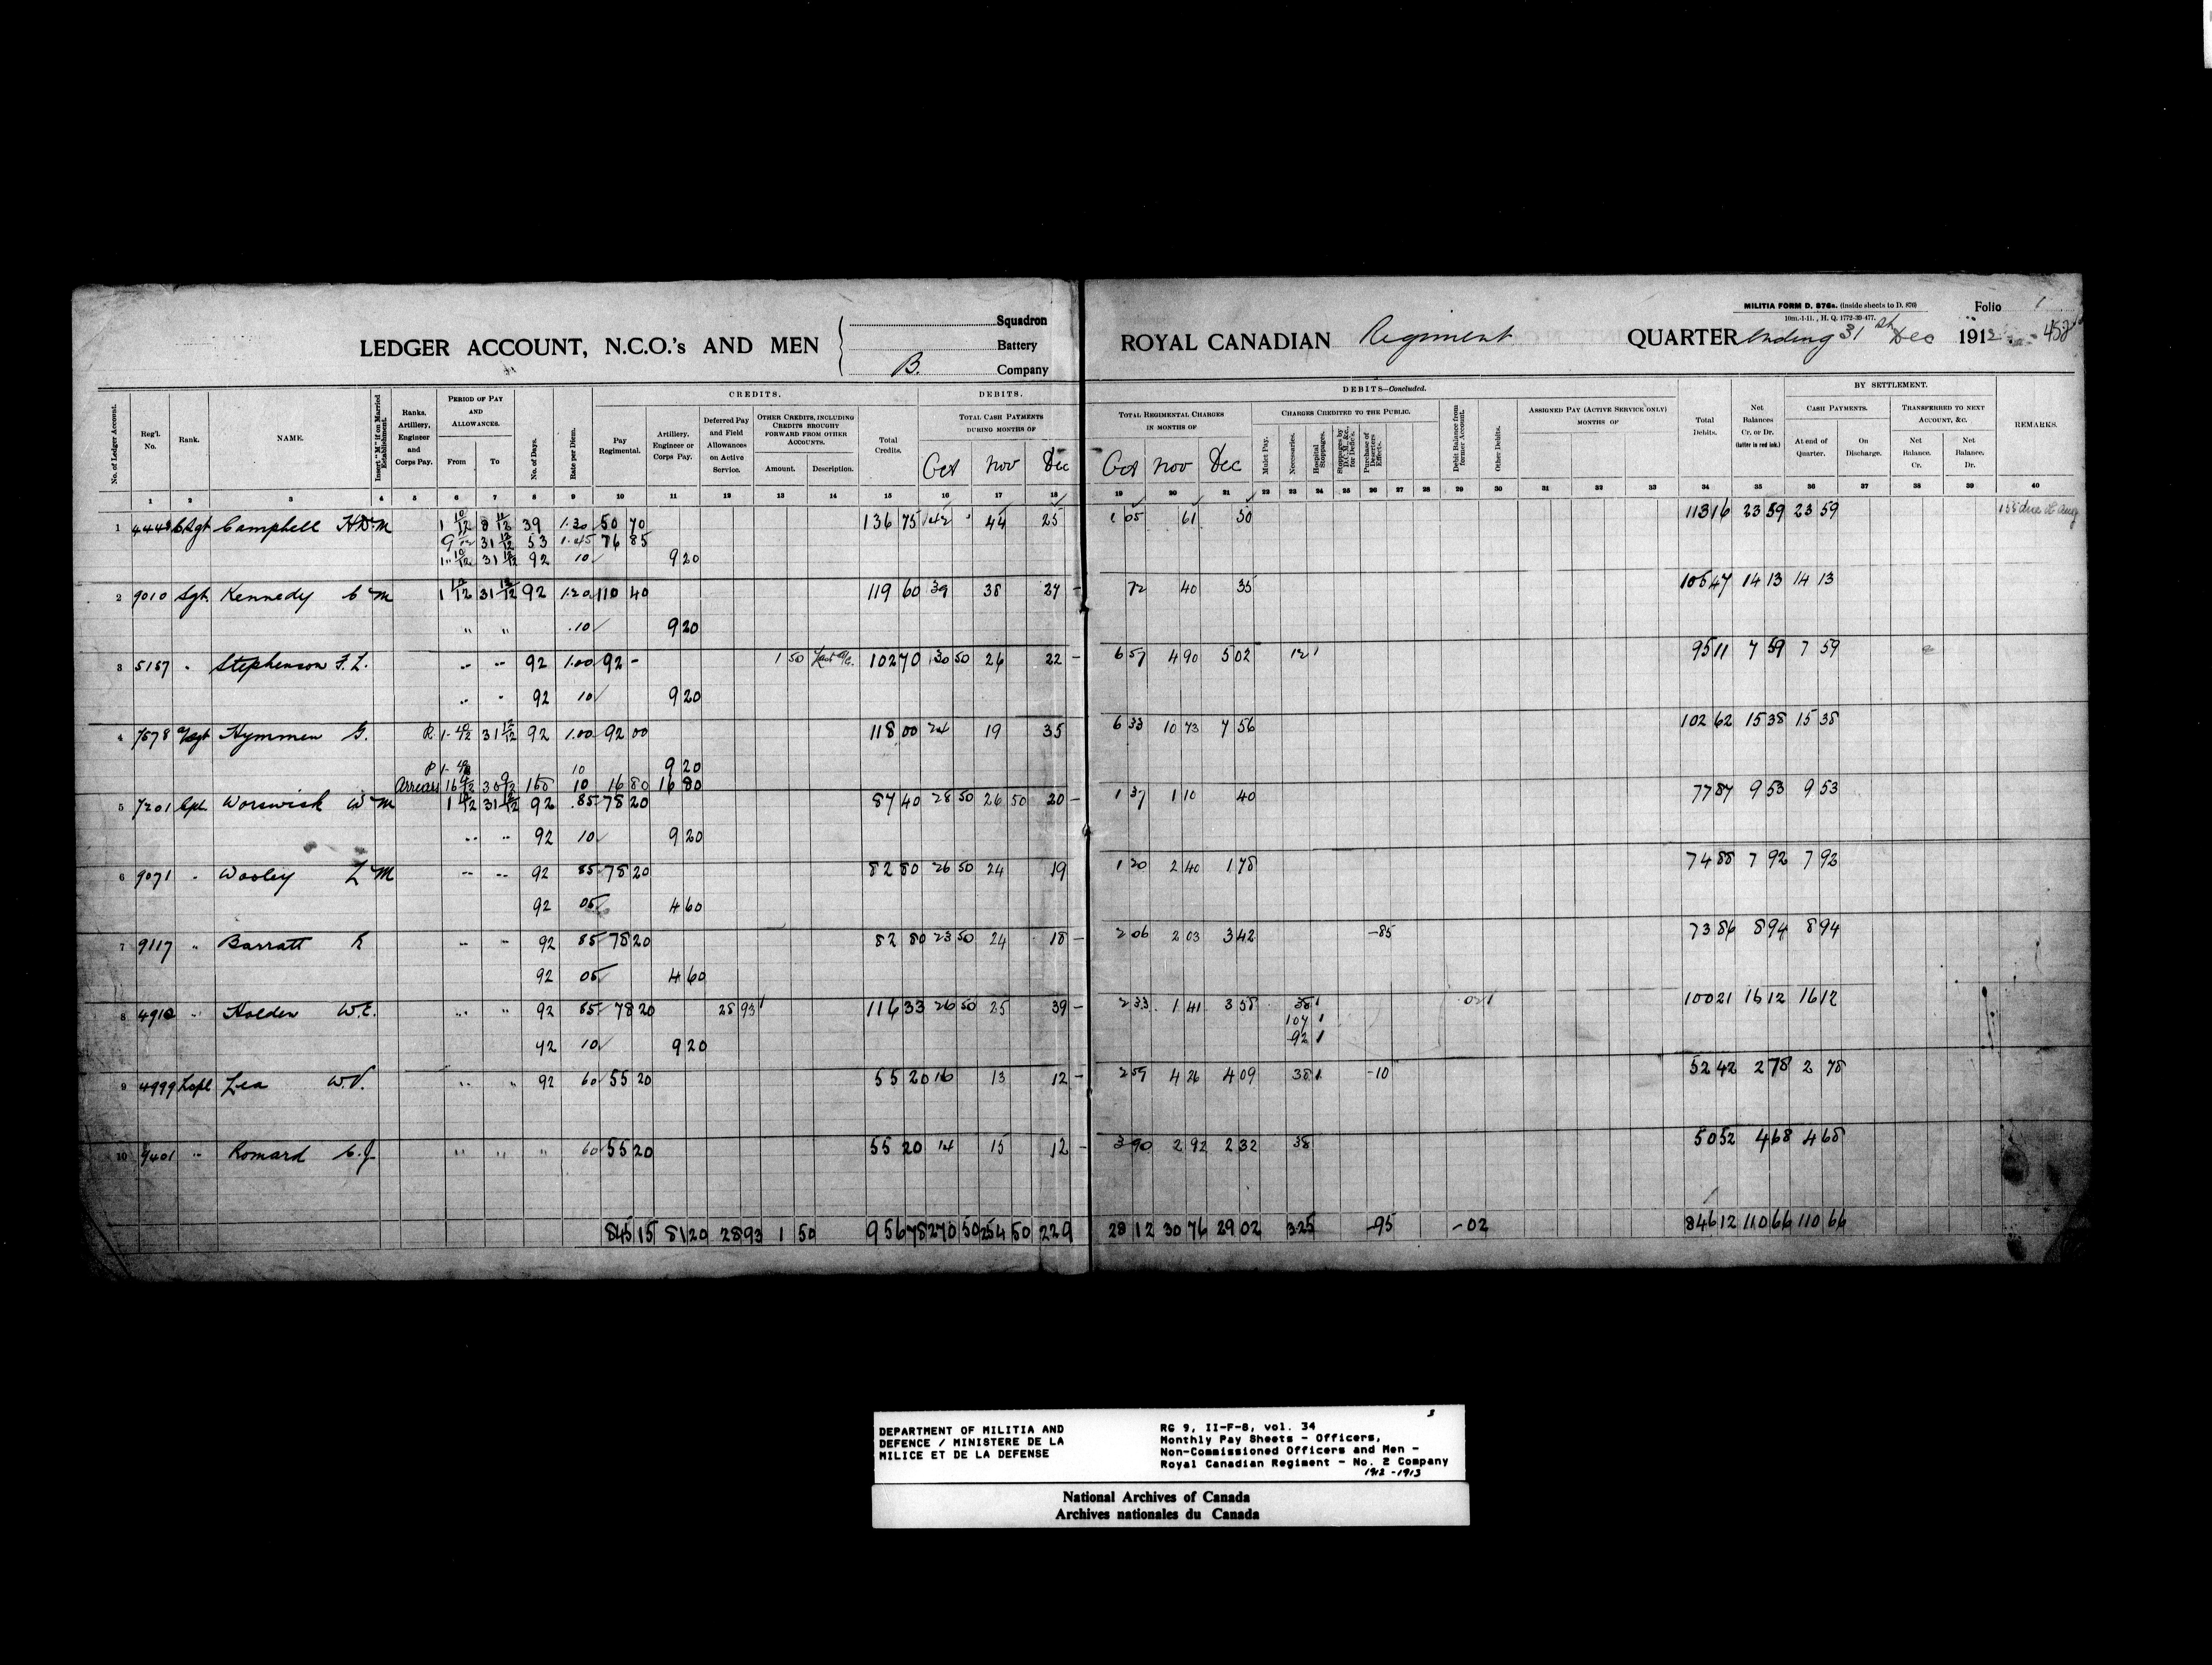 MILITIA FORM D. 876a. (inside sheets to D. 876)
10m.-1-11. , H. Q. 1772-39-477.
Folio 1
LEDGER ACCOUNT, N.C.O.'s AND MEN
Squadron
Battery
B. Company
ROYAL CANADIAN Regiment QUARTER ending 31st Dec 1912
CREDITS. DEBITS.
DEBITS—Concluded. BY SETTLEMENT.
No. of Ledger Account.
Reg'l. No.
Rank.
NAME.
Insert "M" if on Married Establishment.
Ranks, Artillery, Engineer and Corps Pay.
PERIOD OF PAY AND ALLOWANCES.
From To
No. of Days.
Rate per Diem.
Pay Regimental.
Artillery, Engineer or Corps Pay.
Deferred Pay and Field Allowances on Active Service.
OTHER CREDITS, INCLUDING CREDITS BROUGHT FORWARD FROM OTHER ACCOUNTS.
Amount. Description.
Total Credits.
TOTAL CASH PAYMENTS DURING MONTHS OF
Oct Nov Dec
TOTAL REGIMENTAL CHARGES IN MONTHS OF
Oct Nov Dec
CHARGES CREDITED TO THE PUBLIC.
Mulct Pay.
Necessaries.
Hospital Stoppages.
Stoppages by D.C. of &c., for Defic's.
Purchase of Deserters Effects.
Debit Balance from former Account.
Other Debits.
ASSIGNED PAY (ACTIVE SERVICE ONLY) MONTHS OF
Total Debits.
Net Balances Cr. or Dr. (latter in red ink.)
CASH PAYMENTS.
At end of Quarter. On Discharge.
TRANSFERRED TO NEXT ACCOUNT, &C.
Net Balance, Cr. Net Balance, Dr.
REMARKS.
1 2 3 4 5 6 7 8 9 10 11 12 13 14 15 16 17 18 19 20 21 22 23 24 25 26 27 28 29 30 31 32 33 34 35 36 37 38 39 40
1 4448 C Sgt Campbell H.D. M 1 10/12 8 11/12 39 1.30 50 70 136 75 42 44 25 1 05 61 50 113 16 23 59 23 59
9 11/12 31 12/12 53 1.45 76 85
1 10/12 31 12/12 92 10 9 20
2 9010 Sgt Kennedy C M 1 10/12 31 12/12 92 1.20 110 40 119 60 39 38 27 - 72 40 35 105 47 14 13 14 13
" " .10 9 20
3 5167 " Stephenson F. L. " " 92 1.00 92 - 1 50 Last a/c. 102 70 30 50 26 22 - 6 57 4 90 5 02 12 95 11 7 59 7 59
" " 92 10 9 20
4 7578 a/Sgt Hymmen G. R 1 10/12 31 12/12 92 1.00 92 00 118 00 24 19 35 6 33 10 73 7 56 102 62 15 38 15 38
10 9 20
Arrears 16 30 168 10 16 80 16 80
5 7201 Cpl. Worswick W M 1 10/12 31 12/12 92 .85 78 20 87 40 28 50 26 50 20 - 1 37 1 10 40 77 87 9 53 9 53
" " 92 10 9 20
6 9071 " Wooley L M " " 92 85 78 20 82 80 26 50 24 19 1 20 2 40 1 78 74 88 7 92 7 92
92 05 4 60
7 9117 " Barratt R " " 92 85 78 20 82 80 23 50 24 18 - 2 06 2 03 3 42 -85 73 86 8 94 8 94
92 05 4 60
8 4910 " Holden W.E. " " 92 85 78 20 28 93 116 33 26 50 25 39 - 2 33 1 41 3 58 38 02 100 21 16 12 16 12
1 07
92
92 10 9 20
9 4999 L cpl Lea W.V. " " 92 60 55 20 55 20 16 13 12 - 2 59 4 26 4 09 38 -10 52 42 2 78 2 78
10 9401 " Romard C. J. " " " 60 55 20 55 20 14 15 12 - 3 90 2 92 2 32 38 50 52 4 68 4 68
845 15 81 20 28 93 1 50 956 78 270 50 254 50 229 28 12 30 76 29 02 3 25 -95 -02 846 12 110 66 110 66
DEPARTMENT OF MILITIA AND
DEFENCE / MINISTERE DE LA
MILICE ET DE LA DEFENSE
RG 9, II-F-8, vol. 34
Monthly Pay Sheets - Officers,
Non-Commissioned Officers and Men -
Royal Canadian Regiment - No. 2 Company
1912 - 1913
National Archives of Canada
Archives nationales du Canada